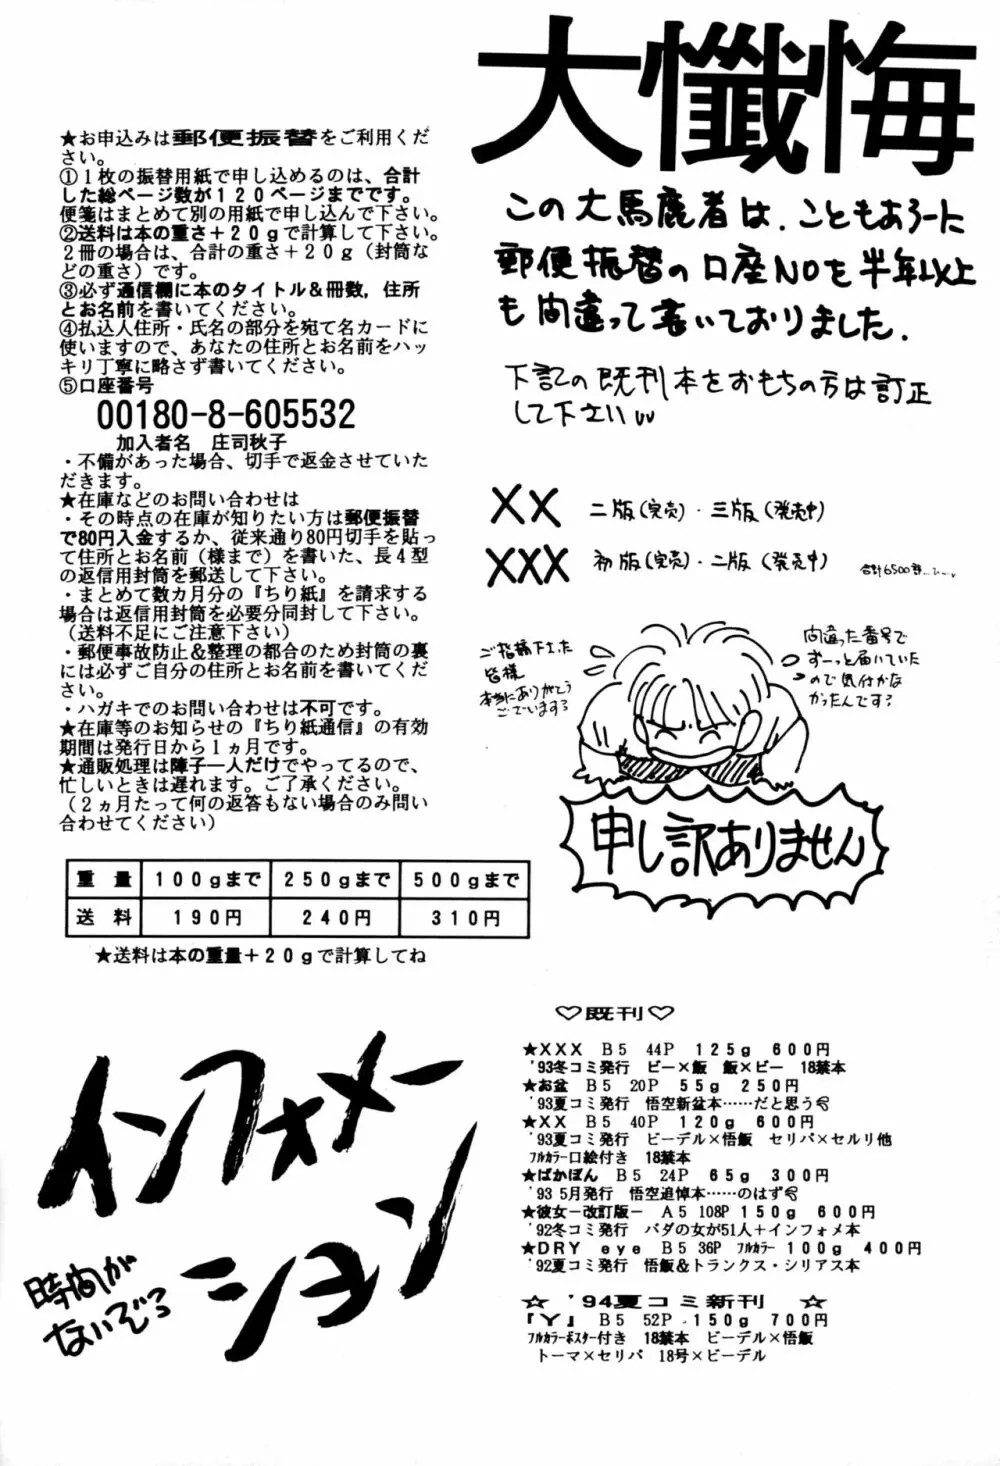 大懺悔
この大馬鹿者は、こともあろーに
郵便振替の口座NOを半年以上
も間違って書いておりました.
下記の既刊本をおもちの方は訂正
して下さい
XX 二版(完売)・三版(発売中)
XXX 初版(完売)・二版(発売中) 合計6500部…
ご指摘下さった
皆様
本当にありがとう
ございます
間違った番号で
ずーっと届いていた
ので気付かな
かったんです
申し訳ありません
★お申込みは郵便振替をご利用くだ
さい。
①1枚の振替用紙で申し込めるのは、合計
した総ページ数が120ページまでです。
便箋はまとめて別の用紙で申し込んで下さい。
②送料は本の重さ+20gで計算して下さい。
2冊の場合は、合計の重さ+20g(封筒な
どの重さ)です。
③必ず通信欄に本のタイトル&冊数,住所
とお名前を書いてください。
④払込人住所・氏名の部分を宛て名カードに
使いますので、あなたの住所とお名前をハッ
キリ丁寧に略さず書いてください。
⑤口座番号
00180-8-605532
加入者名 庄司秋子
・不備があった場合、切手で返金させていた
だきます。
★在庫などのお問い合わせは
・その時点の在庫が知りたい方は郵便振替
で80円入金するか、従来通り80円切手を貼っ
て住所とお名前(様まで)を書いた、長4型
の返信用封筒を郵送して下さい。
・まとめて数カ月分の『ちり紙』を請求する
場合は返信用封筒を必要分同封して下さい。
(送料不足にご注意下さい)
・郵便事故防止&整理の都合のため封筒の裏
には必ずご自分の住所とお名前を書いてくだ
さい。
・ハガキでのお問い合わせは不可です。
★在庫等のお知らせの『ちり紙通信』の有効
期間は発行日から1ヵ月です。
★通販処理は障子一人だけでやってるので、
忙しいときは遅れます。ご了承ください。
(2ヵ月たって何の返答もない場合のみ問い
合わせてください)
重量 100gまで 250gまで 500gまで
送料 190円 240円 310円
★送料は本の重量+20gで計算してね
インフォメー
ション
時間が
ないぞろ
♡既刊♡
★XXX B5 44P 125g 600円
'93冬コミ発行 ビー×飯 飯×ビー 18禁本
★お盆 B5 20P 55g 250円
'93夏コミ発行 悟空新盆本……だと思う
★XX B5 40P 120g 600円
'93夏コミ発行 ビーデル×悟飯 セリパ×セルリ他
フルカラー口絵付き 18禁本
★ばかぼん B5 24P 65g 300円
'93 5月発行 悟空追悼本……のはず
★彼女-改訂版- A5 108P 150g 600円
'92冬コミ発行 バダの女が51人+インフォメ本
★DRY eye B5 36P フルカラー 100g 400円
'92夏コミ発行 悟飯&トランクス・シリアス本
☆ '94夏コミ新刊 ☆
『Y』 B5 52P 150g 700円
フルカラーポスター付き 18禁本 ビーデル×悟飯
トーマ×セリパ 18号×ビーデル